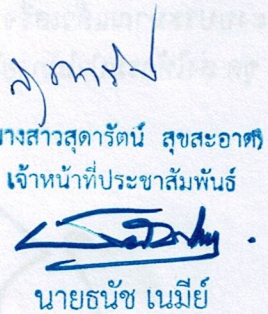 นางสาวสุดารัตน์ สุขสะอาด
เจ้าหน้าที่ประชาสัมพันธ์
นายธนัช เนมีย์